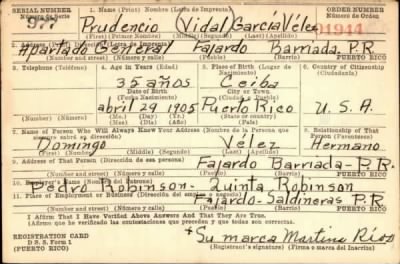 SERIAL NUMBER
Número de Serie
977
1. Name (Print) Nombre (Letra de Imprenta)
ORDER NUMBER
Número de Orden
Prudencio (Vidal) García Vélez
01944
(First) (Primer Nombre) (Middle) (Segundo) (Last) (Apellido)
2. Address (Print) Dirección (Letra de Imprenta)
Apartado General Fajardo Barriada. P.R
Number and street (Número y calle) (City or town) (Ciudad o pueblo) PUERTO RICO
3. Telephone (Teléfono)
4. Age in Years (Edad)
5. Place of Birth (Lugar de Nacimiento)
6. Country of Citizenship (Ciudadanía)
35 años
Ceiba
Date of Birth
(Fecha Nacimiento)
City or Town
(Ciudad o Pueblo)
abril 29 1905
Puerto Rico
U. S. A.
Number (Número)
(Mo.) (Day) (Yr.)
(Mes) (Día) (Año)
State or country
(Estado o país)
7. Name of Person Who Will Always Know Your Address (Nombre de la Persona que siempre sabrá su dirección)
8. Relationship of That Person (Parentesco)
Domingo Vélez Hermano
(First) (Primer Nombre) (Middle) (Segundo) (Last) (Apellido)
9. Address of That Person (Dirección de esa persona)
Fajardo Barriada - P.R.
Number and street (Número y calle) (City or town) (Ciudad o pueblo) PUERTO RICO
10. Employer's Name (Nombre del Patrono)
Pedro Robinson - Quinta Robinson
11. Place of Employment or Business (Dirección del empleo o negocio)
Fajardo - Saldineras P.R
Number and street (Número y calle) (City or town) (Ciudad o pueblo) PUERTO RICO
I Affirm That I Have Verified Above Answers And That They Are True.
(Afirmo que he verificado las contestaciones que preceden y que todas son ciertas.)
REGISTRATION CARD
D. S. S. Form 1
(PUERTO RICO)
+ Su marca Martina Ríos
(Registrant's signature) (Firma o marca del Inscrito)